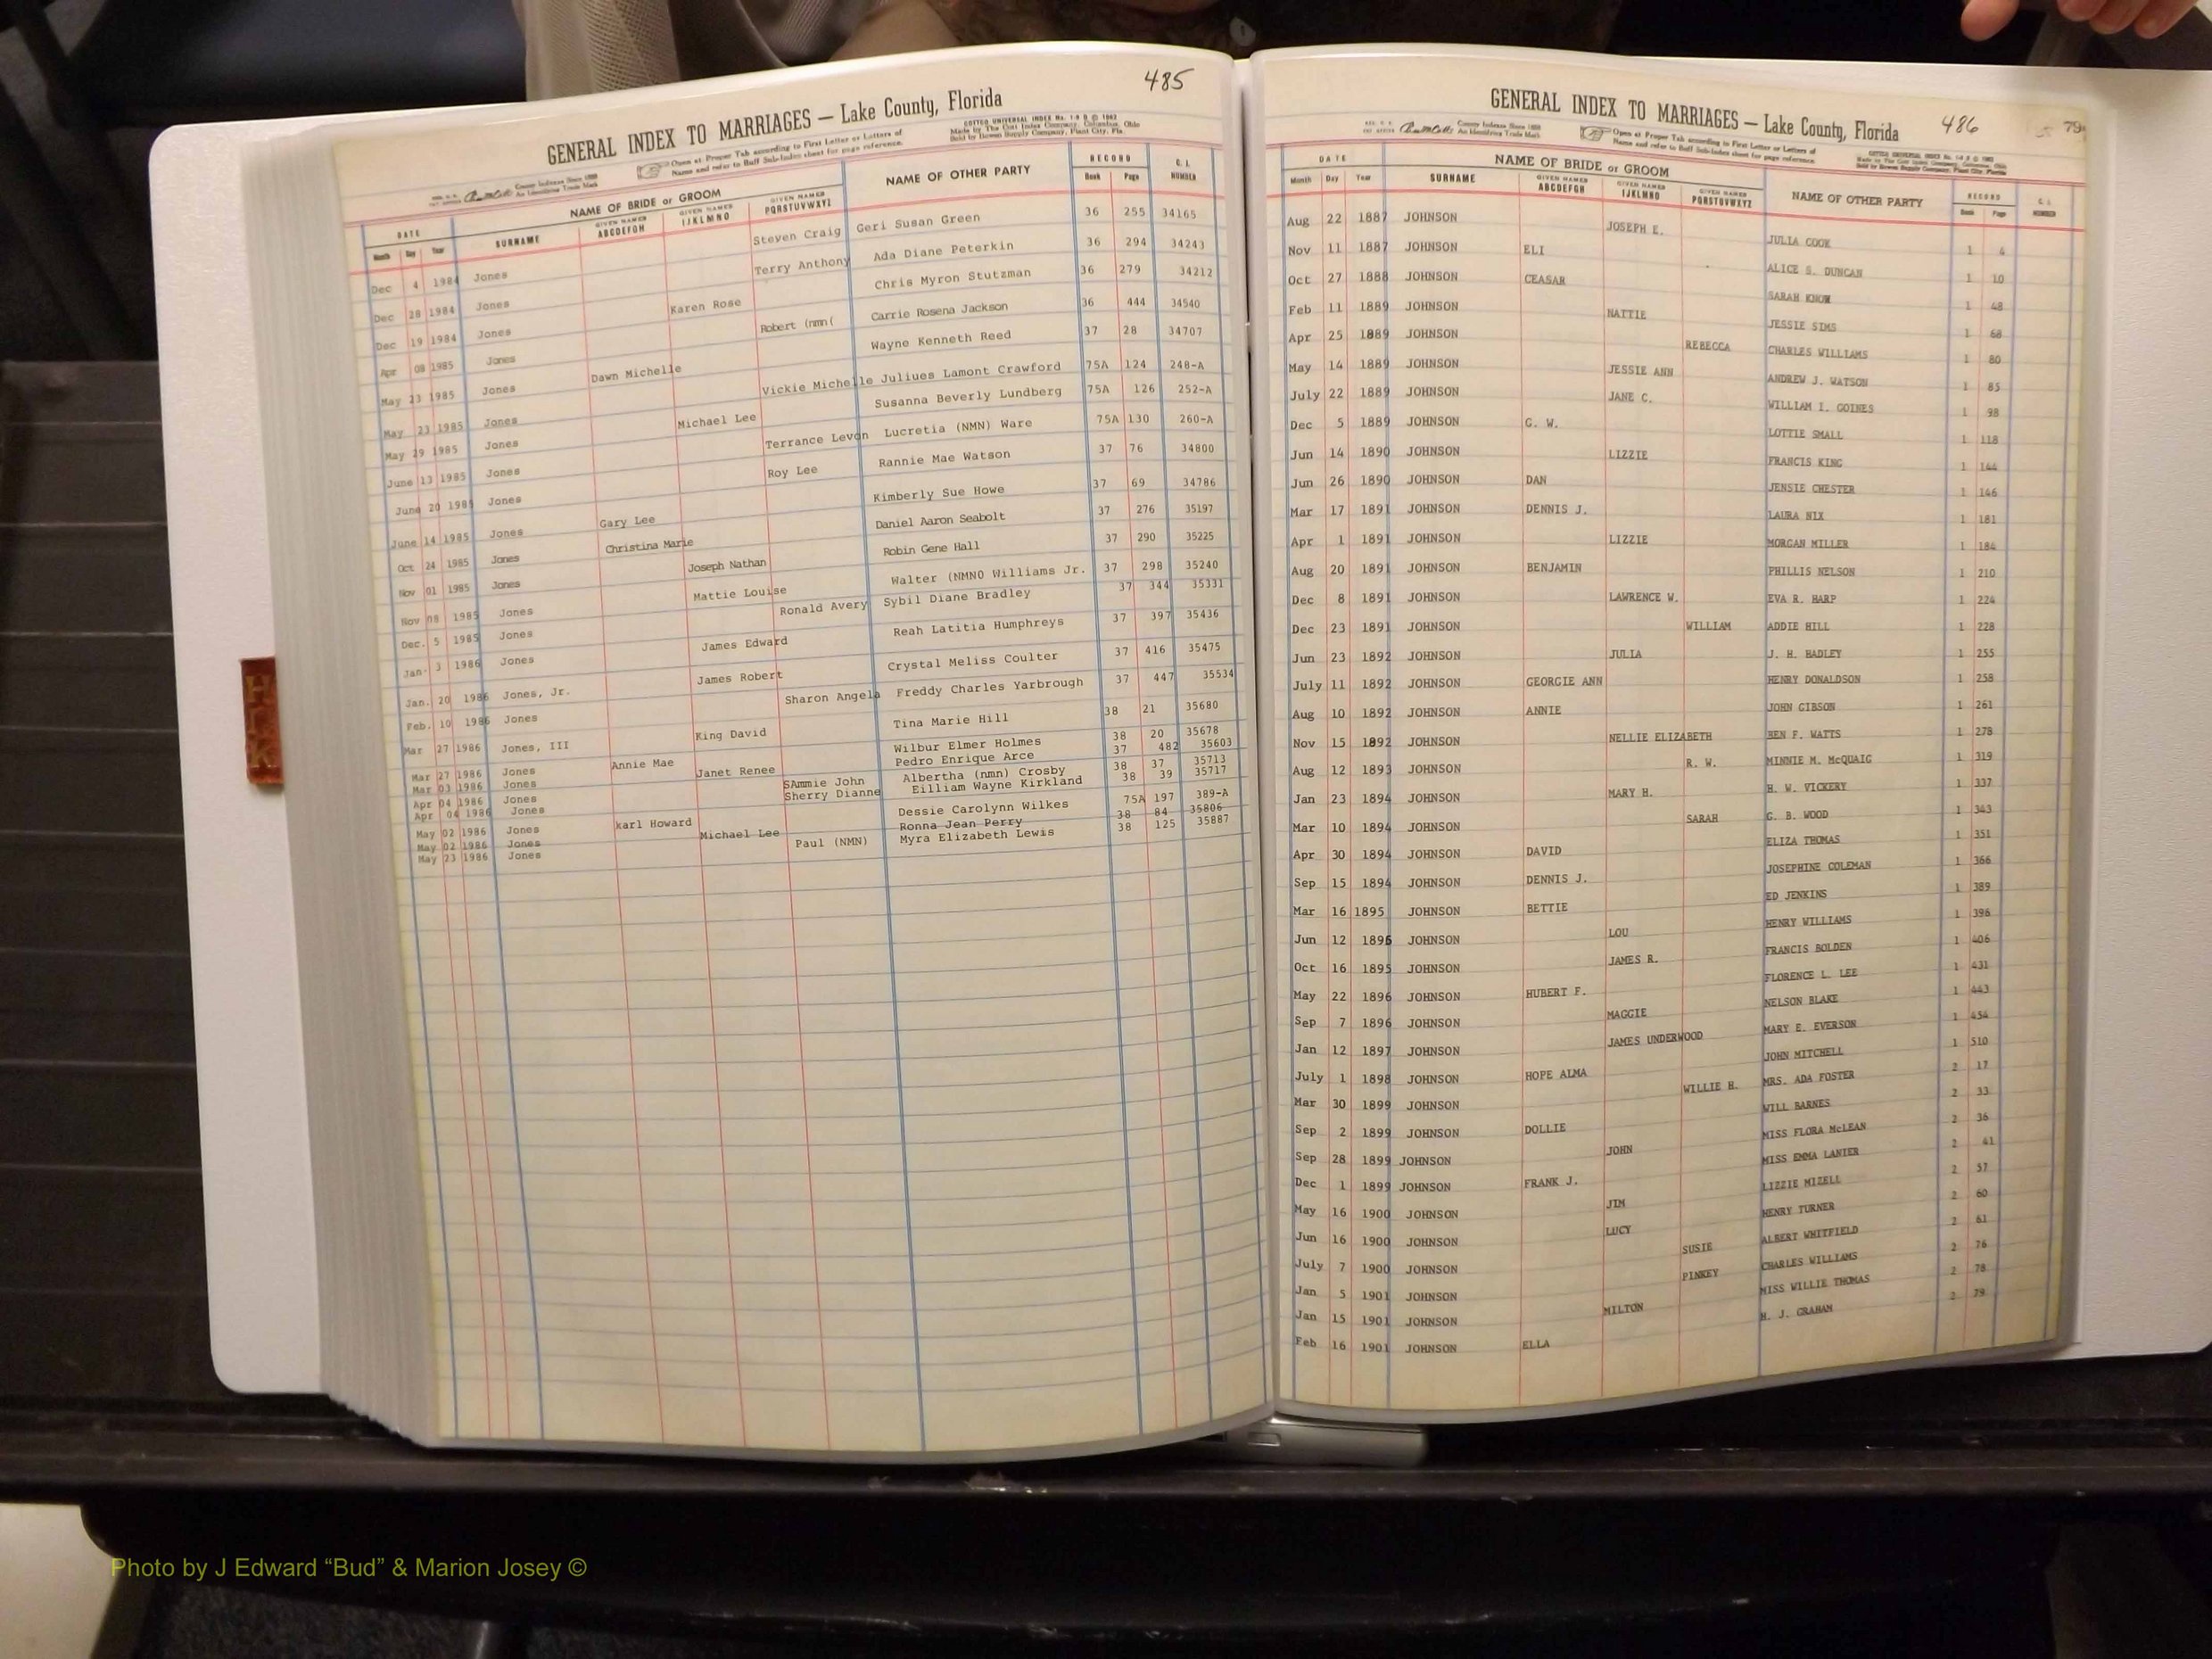 485
GENERAL INDEX TO MARRIAGES — Lake County, Florida
Open at Proper Tab according to First Letter or Letters of
Name and refer to Buff Sub-Index sheet for page reference.
COTTCO UNIVERSAL INDEX No. 1-9 D © 1963
Made by The Cott Index Company, Columbus, Ohio
Sold by Bowen Supply Company, Plant City, Fla.
County Indexes Since 1888
An Identifying Trade Mark
DATE NAME OF BRIDE or GROOM NAME OF OTHER PARTY RECORD C. L. NUMBER
Month Day Year SURNAME GIVEN NAMES ABCDEFGH GIVEN NAMES IJKLMNO GIVEN NAMES PQRSTUVWXYZ Book Page
Dec 4 1984 Jones Steven Craig Geri Susan Green 36 255 34165
Dec 28 1984 Jones Terry Anthony Ada Diane Peterkin 36 294 34243
Dec 19 1984 Jones Karen Rose Chris Myron Stutzman 36 279 34212
Apr 08 1985 Jones Robert (nmn( Carrie Rosena Jackson 36 444 34540
May 23 1985 Jones Dawn Michelle Wayne Kenneth Reed 37 28 34707
May 23 1985 Jones Vickie Michelle Juliues Lamont Crawford 75A 124 248-A
May 29 1985 Jones Michael Lee Susanna Beverly Lundberg 75A 126 252-A
June 13 1985 Jones Terrance Levon Lucretia (NMN) Ware 75A 130 260-A
June 20 1985 Jones Roy Lee Rannie Mae Watson 37 76 34800
June 14 1985 Jones Gary Lee Kimberly Sue Howe 37 69 34786
Oct 24 1985 Jones Christina Marie Daniel Aaron Seabolt 37 276 35197
Nov 01 1985 Jones Joseph Nathan Robin Gene Hall 37 290 35225
Nov 08 1985 Jones Mattie Louise Walter (NMN0 Williams Jr. 37 298 35240
Dec. 5 1985 Jones Ronald Avery Sybil Diane Bradley 37 344 35331
Jan. 3 1986 Jones James Edward Reah Latitia Humphreys 37 397 35436
Jan. 20 1986 Jones, Jr. James Robert Crystal Meliss Coulter 37 416 35475
Feb. 10 1986 Jones Sharon Angela Freddy Charles Yarbrough 37 447 35534
Mar 27 1986 Jones, III King David Tina Marie Hill 38 21 35680
Mar 27 1986 Jones Annie Mae Wilbur Elmer Holmes 38 20 35678
Mar 03 1986 Jones Janet Renee Pedro Enrique Arce 37 482 35603
Apr 04 1986 Jones SAmmie John Albertha (nmn) Crosby 38 37 35713
Apr 04 1986 Jones Sherry Dianne Eilliam Wayne Kirkland 38 39 35717
May 02 1986 Jones karl Howard Dessie Carolynn Wilkes 75A 197 389-A
May 02 1986 Jones Michael Lee Ronna Jean Perry 38 84 35806
May 23 1986 Jones Paul (NMN) Myra Elizabeth Lewis 38 125 35887
HIJK
486
79
GENERAL INDEX TO MARRIAGES — Lake County, Florida
County Indexes Since 1888
An Identifying Trade Mark
Open at Proper Tab according to First Letter or Letters of
Name and refer to Buff Sub-Index sheet for page reference.
DATE NAME OF BRIDE or GROOM NAME OF OTHER PARTY RECORD C. L. NUMBER
Month Day Year SURNAME GIVEN NAMES ABCDEFGH GIVEN NAMES IJKLMNO GIVEN NAMES PQRSTUVWXYZ Book Page
Aug 22 1887 JOHNSON JOSEPH E. JULIA COOK 1 4
Nov 11 1887 JOHNSON ELI ALICE S. DUNCAN 1 10
Oct 27 1888 JOHNSON CEASAR SARAH KNOW 1 48
Feb 11 1889 JOHNSON NATTIE JESSIE SIMS 1 68
Apr 25 1889 JOHNSON REBECCA CHARLES WILLIAMS 1 80
May 14 1889 JOHNSON JESSIE ANN ANDREW J. WATSON 1 85
July 22 1889 JOHNSON JANE C. WILLIAM I. GOINES 1 98
Dec 5 1889 JOHNSON G. W. LOTTIE SMALL 1 118
Jun 14 1890 JOHNSON LIZZIE FRANCIS KING 1 144
Jun 26 1890 JOHNSON DAN JENSIE CHESTER 1 146
Mar 17 1891 JOHNSON DENNIS J. LAURA NIX 1 181
Apr 1 1891 JOHNSON LIZZIE MORGAN MILLER 1 184
Aug 20 1891 JOHNSON BENJAMIN PHILLIS NELSON 1 210
Dec 8 1891 JOHNSON LAWRENCE W. EVA R. HARP 1 224
Dec 23 1891 JOHNSON WILLIAM ADDIE HILL 1 228
Jun 23 1892 JOHNSON JULIA J. H. BADLEY 1 255
July 11 1892 JOHNSON GEORGIE ANN HENRY DONALDSON 1 258
Aug 10 1892 JOHNSON ANNIE JOHN GIBSON 1 261
Nov 15 1892 JOHNSON NELLIE ELIZABETH BEN F. WATTS 1 278
Aug 12 1893 JOHNSON R. W. MINNIE M. McQUAIG 1 319
Jan 23 1894 JOHNSON MARY H. H. W. VICKERY 1 337
Mar 10 1894 JOHNSON SARAH G. B. WOOD 1 343
Apr 30 1894 JOHNSON DAVID ELIZA THOMAS 1 351
Sep 15 1894 JOHNSON DENNIS J. JOSEPHINE COLEMAN 1 366
Mar 16 1895 JOHNSON BETTIE ED JENKINS 1 389
Jun 12 1895 JOHNSON LOU HENRY WILLIAMS 1 396
Oct 16 1895 JOHNSON JAMES R. FRANCIS BOLDEN 1 406
May 22 1896 JOHNSON HUBERT F. FLORENCE L. LEE 1 431
Sep 7 1896 JOHNSON MAGGIE NELSON BLAKE 1 443
Jan 12 1897 JOHNSON JAMES UNDERWOOD MARY E. EVERSON 1 454
July 1 1898 JOHNSON HOPE ALMA JOHN MITCHELL 1 510
Mar 30 1899 JOHNSON WILLIE H. MRS. ADA FOSTER 2 17
Sep 2 1899 JOHNSON DOLLIE WILL BARNES 2 33
Sep 28 1899 JOHNSON JOHN MISS FLORA McLEAN 2 36
Dec 1 1899 JOHNSON FRANK J. MISS EMMA LANIER 2 41
May 16 1900 JOHNSON JIM LIZZIE MIZELL 2 57
Jun 16 1900 JOHNSON LUCY HENRY TURNER 2 60
July 7 1900 JOHNSON SUSIE ALBERT WHITFIELD 2 61
Jan 5 1901 JOHNSON PINKEY CHARLES WILLIAMS 2 76
Jan 15 1901 JOHNSON MILTON MISS WILLIE THOMAS 2 78
Feb 16 1901 JOHNSON ELLA H. J. GRAHAM 2 79
Photo by J Edward “Bud” & Marion Josey ©